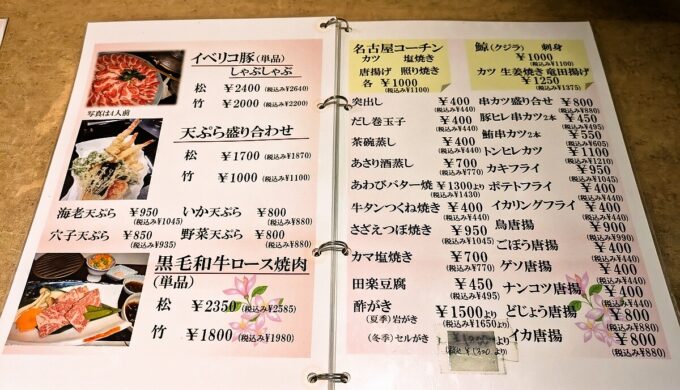 イベリコ豚(単品)
しゃぶしゃぶ
松 ¥2400(税込み¥2640)
竹 ¥2000(税込み¥2200)
写真は4人前
天ぷら盛り合わせ
松 ¥1700(税込み¥1870)
竹 ¥1000(税込み¥1100)
海老天ぷら ¥950(税込み¥1045) いか天ぷら ¥800(税込み¥880)
穴子天ぷら ¥850(税込み¥935) 野菜天ぷら ¥800(税込み¥880)
黒毛和牛ロース焼肉
(単品)
松 ¥2350(税込み¥2585)
竹 ¥1800(税込み¥1980)
名古屋コーチン
カツ 塩焼き
唐揚げ 照り焼き
各 ¥1000(税込み¥1100)
鯨(クジラ) 刺身
¥1000(税込み¥1100)
カツ 生姜焼き 竜田揚げ
¥1250(税込み¥1375)
突出し ¥400(税込み¥440)
だし巻玉子 ¥400(税込み¥440)
茶碗蒸し ¥400(税込み¥440)
あさり酒蒸し ¥700(税込み¥770)
あわびバター焼 ¥1300より(税込み¥1430)
牛タンつくね焼き ¥400(税込み¥440)
さざえつぼ焼き ¥950(税込み¥1045)
カマ塩焼き ¥700(税込み¥770)
田楽豆腐 ¥450(税込み¥495)
酢がき
(夏季)岩がき ¥1500より(税込み¥1650より)
(冬季)セルがき
串カツ盛り合せ ¥800(税込み¥880)
豚ヒレ串カツ2本 ¥450(税込み¥495)
鮪串カツ2本 ¥550(税込み¥605)
トンヒレカツ ¥1100(税込み¥1210)
カキフライ ¥950(税込み¥1045)
ポテトフライ ¥400(税込み¥440)
イカリングフライ ¥400(税込み¥440)
鳥唐揚 ¥400(税込み¥440)
ごぼう唐揚 ¥400(税込み¥440)
ゲソ唐揚 ¥400(税込み¥440)
ナンコツ唐揚 ¥400(税込み¥440)
どじょう唐揚 ¥800(税込み¥880)
イカ唐揚 ¥800(税込み¥880)